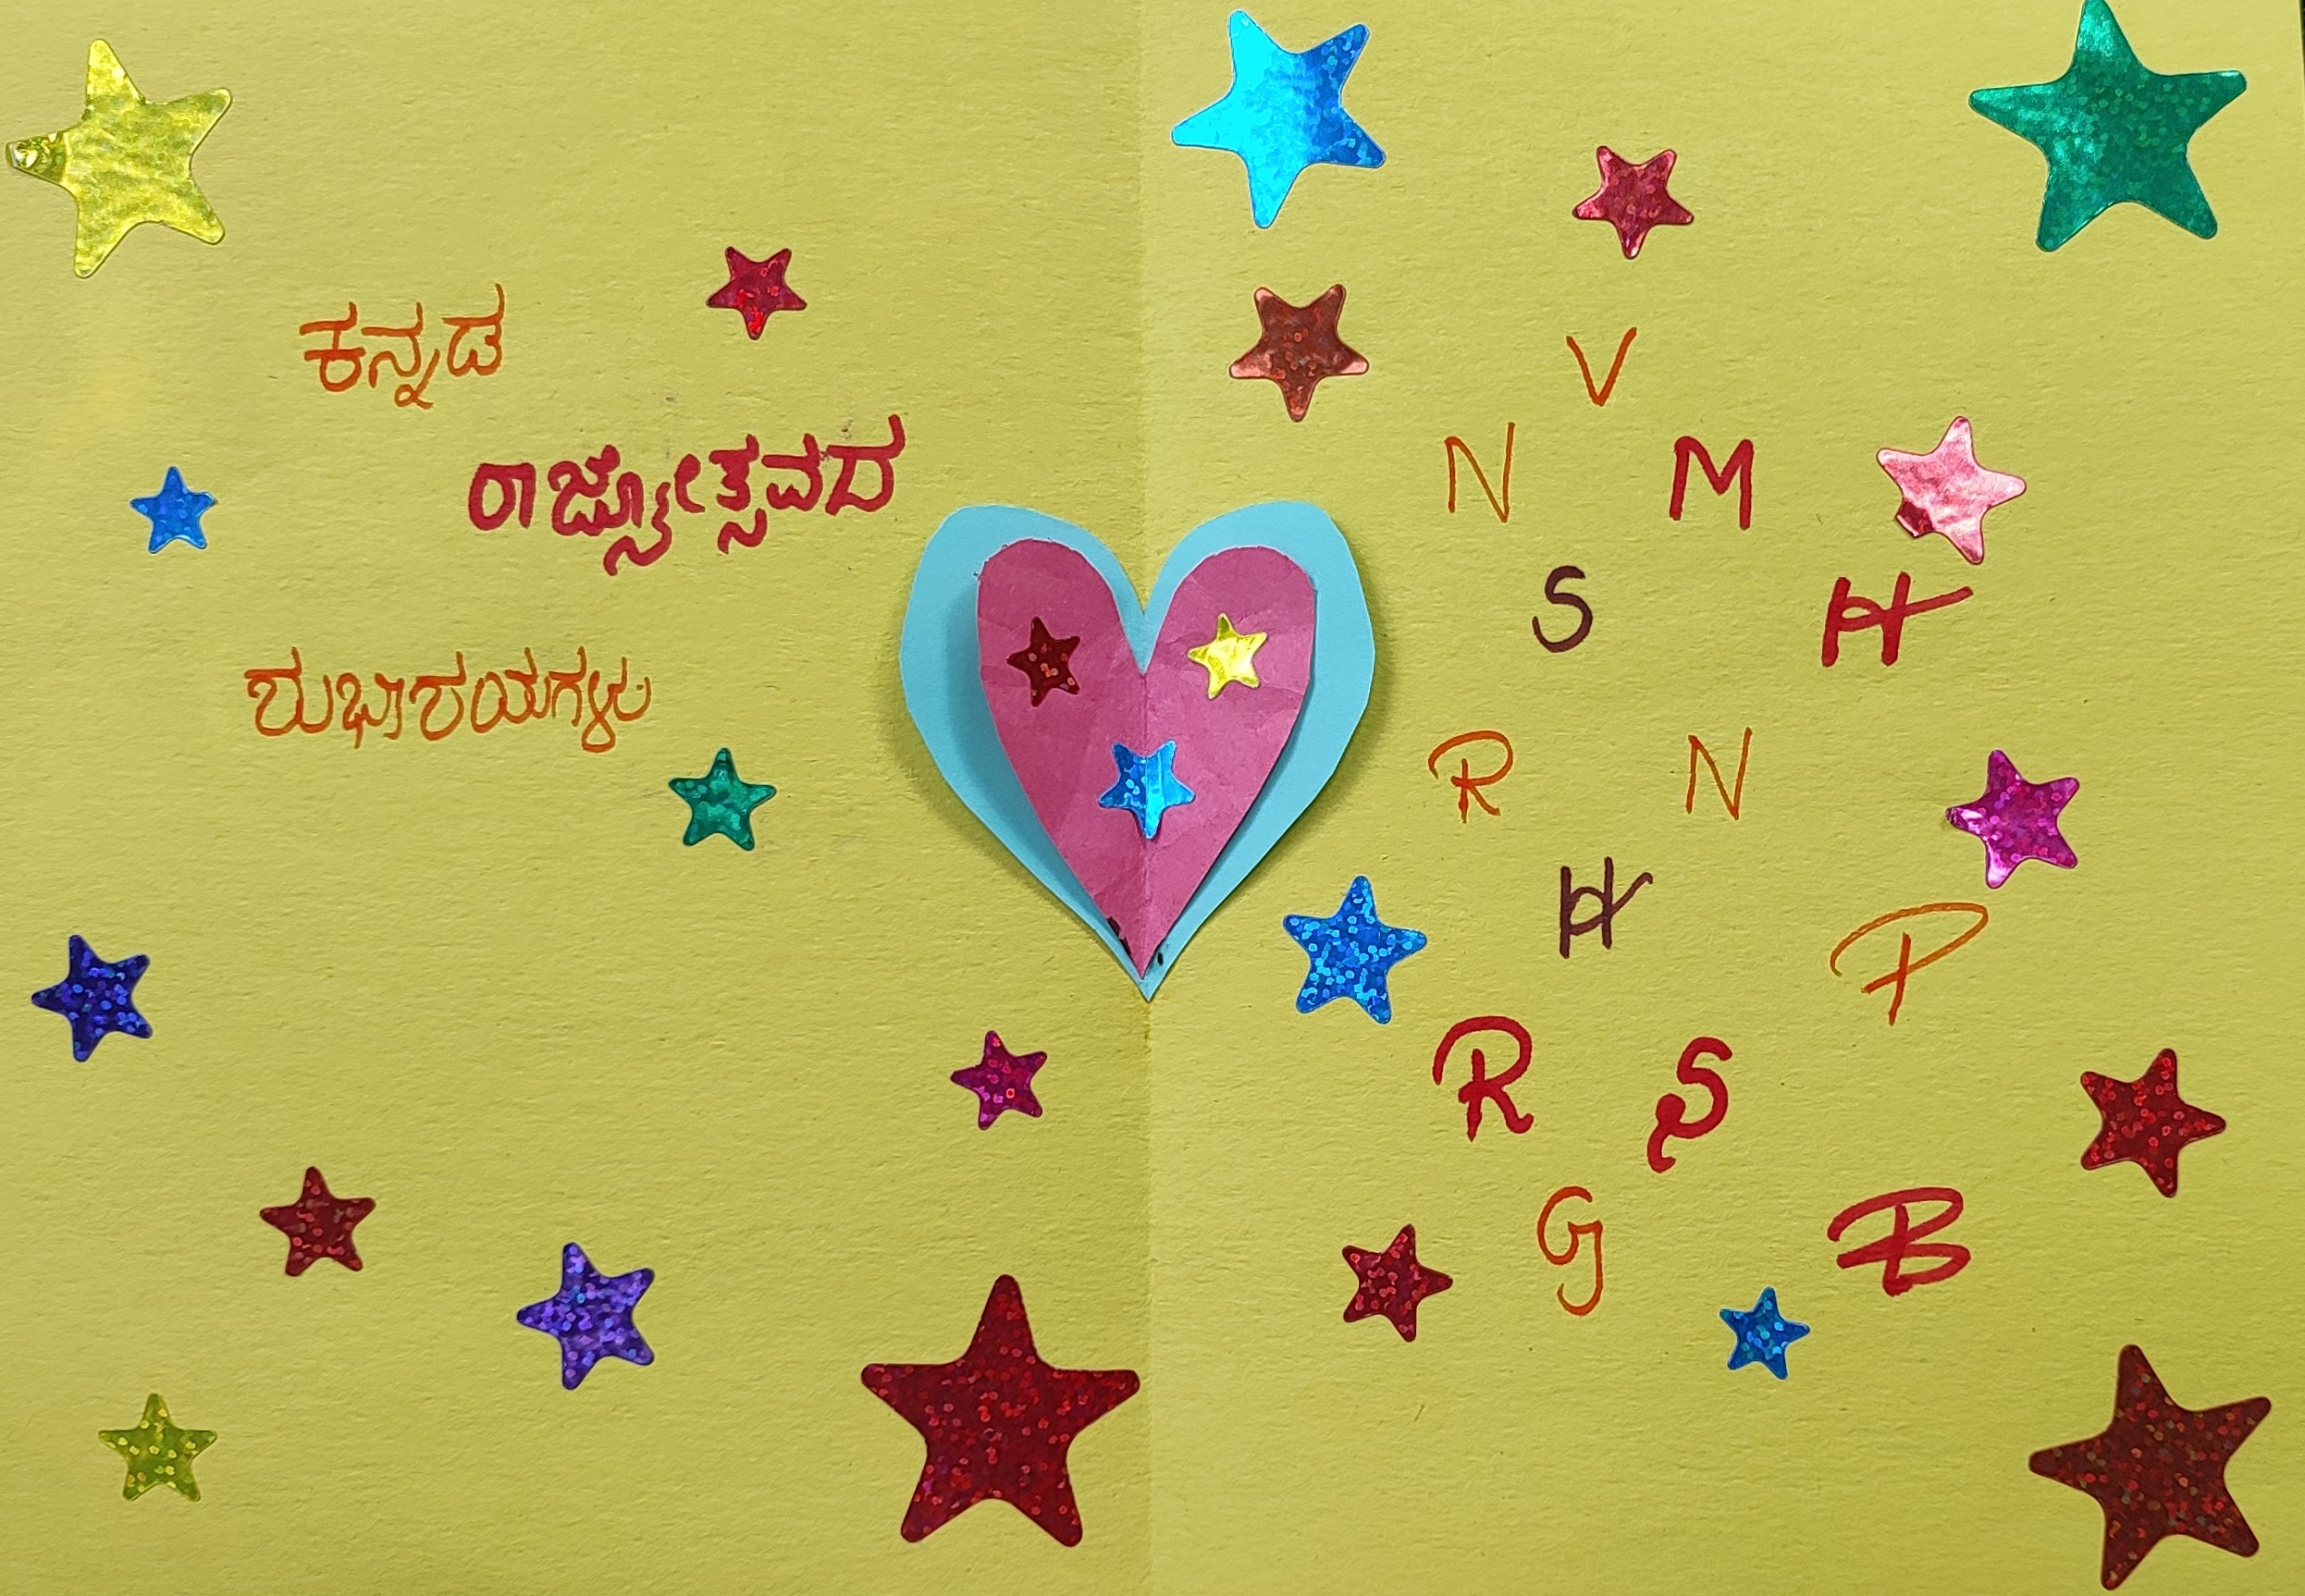 ಕನ್ನಡ
ರಾಜ್ಯೋತ್ಸವದ
ಶುಭಾಶಯಗಳು
V
N M
S H
R N
H P
R S
G B